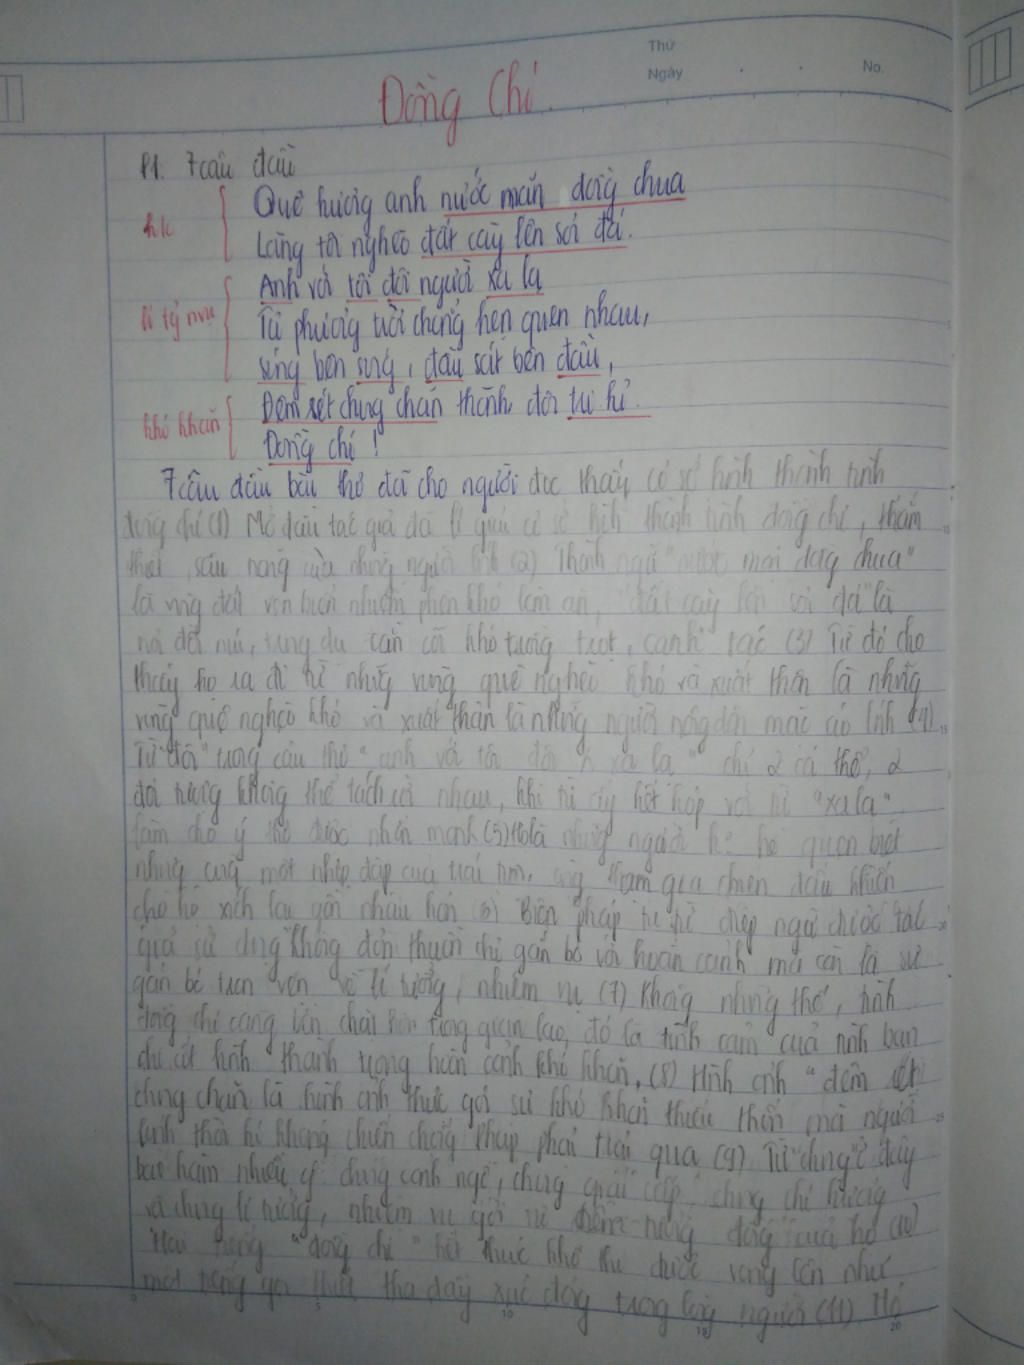 Thứ
Ngày . . No.
Đồng Chí.
P1. 7 câu đầu
Quê hương anh nước mặn đồng chua
Làng tôi nghèo đất cày lên sỏi đá.
Anh với tôi đôi người xa lạ
Từ phương trời chẳng hẹn quen nhau,
súng bên súng, đầu sát bên đầu,
Đêm rét chung chăn thành đôi tri kỉ.
khó khăn
Đồng chí !
7 câu đầu bài thơ đã cho người đọc thấy cơ sở hình thành tình
đồng chí (1) Mở đầu tác giả đã lí giải cơ sở hình thành tình đồng chí, thắm
thiết, sâu nặng của những người lính (2) Thành ngữ "nước mặn đồng chua"
là vùng đất ven biển nhiễm phèn khó làm ăn, "đất cày lên sỏi đá" là
nơi đồi núi, trung du cằn cỗi khó trồng trọt, canh tác (3) Từ đó cho
thấy họ ra đi từ những vùng quê nghèo khó và xuất thân là những
vùng quê nghèo khó và xuất thân là những người nông dân mặc áo lính (4)
Từ "đôi" trong câu thơ "anh với tôi đôi xa lạ" chỉ 2 cá thể, 2
đối tượng không thể tách rời nhau, khi từ ấy kết hợp với từ "xa lạ"
làm cho ý thơ được nhấn mạnh (5) Họ là những người quen biết
nhưng cùng một nhịp đập của trái tim, cùng tham gia chiến đấu khiến
cho họ xích lại gần nhau hơn (6) Biện pháp tu từ điệp ngữ được tác
giả sử dụng không đơn thuần chỉ gắn bó với hoàn cảnh mà còn là sự
gắn bó trọn vẹn về lí tưởng, nhiệm vụ (7) Không những thế, tình
đồng chí càng bền chặt hơn trong gian lao, đó là tình cảm của tình bạn
chí cốt hình thành trong hoàn cảnh khó khăn. (8) Hình ảnh "đêm rét
chung chăn là hình ảnh thực gợi sự khó khăn thiếu thốn mà người
lính thời kì kháng chiến chống Pháp phải trải qua (9) Từ "chung" ở đây
bao hàm nhiều ý: chung cảnh ngộ, chung giai cấp, chung chí hướng
và chung lí tưởng, nhiệm vụ gợi về của họ (10)
Hai tiếng "đồng chí" kết thúc khổ thơ được vang lên như
một tiếng gọi thiết tha đầy xúc động trong lòng người (11) Họ